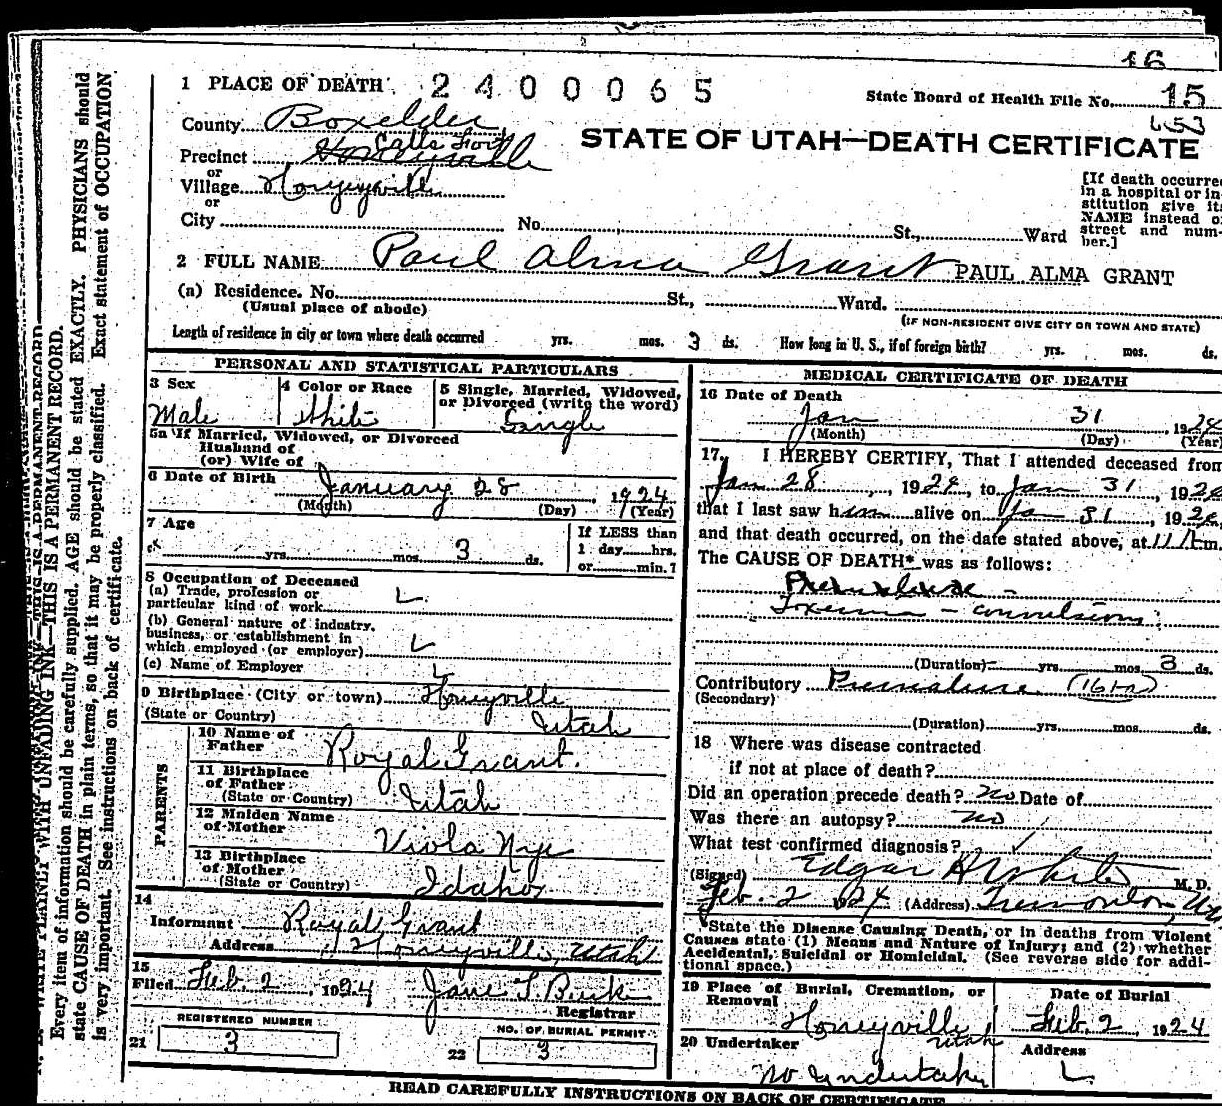 16
1 PLACE OF DEATH 2400065
State Board of Health File No. 15
653
County Boxelder
STATE OF UTAH—DEATH CERTIFICATE
Calls Fort
Precinct Honeyville
or
Village Honeyville
or
City No. St., Ward
[If death occurred
in a hospital or in-
stitution give its
NAME instead of
street and num-
ber.]
2 FULL NAME Paul Alma Grant PAUL ALMA GRANT
(a) Residence. No. St., Ward.
(Usual place of abode)
(IF NON-RESIDENT GIVE CITY OR TOWN AND STATE)
Length of residence in city or town where death occurred yrs. mos. 3 ds. How long in U. S., if of foreign birth? yrs. mos. ds.
PERSONAL AND STATISTICAL PARTICULARS
3 Sex
Male
4 Color or Race
White
5 Single, Married, Widowed,
or Divorced (write the word)
Single
5a If Married, Widowed, or Divorced
Husband of
(or) Wife of
6 Date of Birth
January 28, 1924
(Month) (Day) (Year)
7 Age
yrs. mos. 3 ds.
If LESS than
1 day hrs.
or min.?
8 Occupation of Deceased
(a) Trade, profession or
particular kind of work
(b) General nature of industry,
business, or establishment in
which employed (or employer)
(c) Name of Employer
9 Birthplace (City or town) Honeyville
(State or Country) Utah
PARENTS
10 Name of
Father Royal Grant.
11 Birthplace
of Father
(State or Country) Utah
12 Maiden Name
of Mother Viola Nye
13 Birthplace
of Mother
(State or Country) Idaho
14
Informant Royal Grant
Address Honeyville, Utah
15
Filed Feb. 2, 1924 Jane T. Burk
Registrar
REGISTERED NUMBER
21 3
NO. OF BURIAL PERMIT
22 3
MEDICAL CERTIFICATE OF DEATH
16 Date of Death
Jan 31, 1924
(Month) (Day) (Year)
17. I HEREBY CERTIFY, That I attended deceased from
Jan 28, 1924, to Jan 31, 192
that I last saw him alive on Jan 31, 192
and that death occurred, on the date stated above, at 11 m.
The CAUSE OF DEATH* was as follows:
Toxemia - convulsions
(Duration) yrs. mos. 3 ds.
Contributory Premature
(Secondary)
(Duration) yrs. mos. ds.
18 Where was disease contracted
if not at place of death?
Did an operation precede death? No Date of
Was there an autopsy? no
What test confirmed diagnosis?
(Signed) Edgar White M. D.
Feb. 2 1924 (Address) Tremonton, Utah
*State the Disease Causing Death, or in deaths from Violent
Causes state (1) Means and Nature of Injury; and (2) whether
Accidental, Suicidal or Homicidal. (See reverse side for addi-
tional space.)
19 Place of Burial, Cremation, or
Removal
Honeyville
Utah
Date of Burial
Feb. 2, 1924
20 Undertaker
No Undertaker
Address
READ CAREFULLY INSTRUCTIONS ON BACK OF CERTIFICATE
N. B.—WRITE PLAINLY WITH UNFADING INK—THIS IS A PERMANENT RECORD.
Every item of information should be carefully supplied. AGE should be stated EXACTLY. PHYSICIANS should
state CAUSE OF DEATH in plain terms, so that it may be properly classified. Exact statement of OCCUPATION
is very important. See instructions on back of certificate.